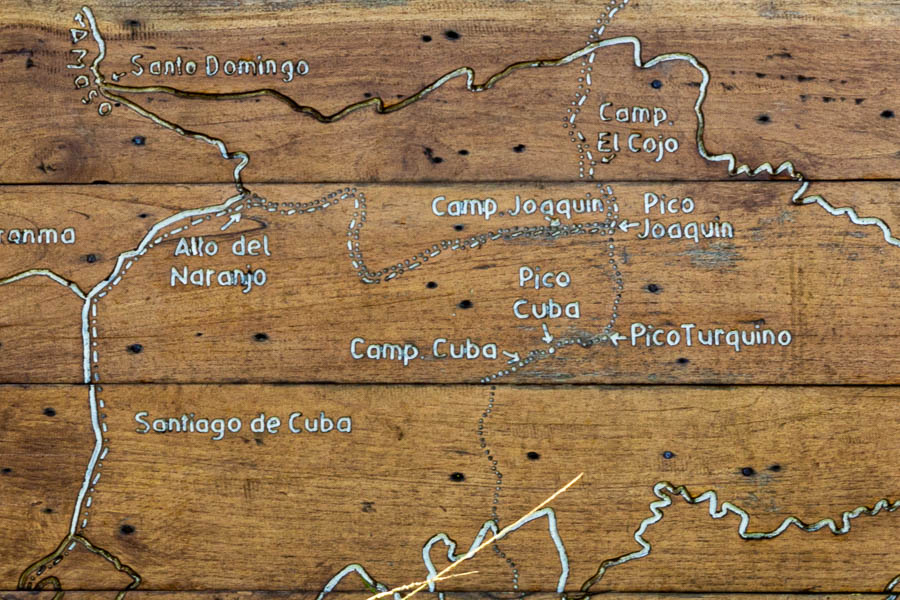 Santo Domingo
Camp.
El Cojo
Camp Joaquin
Pico
Joaquin
Alto del
Naranjo
Pico
Cuba
Pico Turquino
Camp. Cuba
Santiago de Cuba